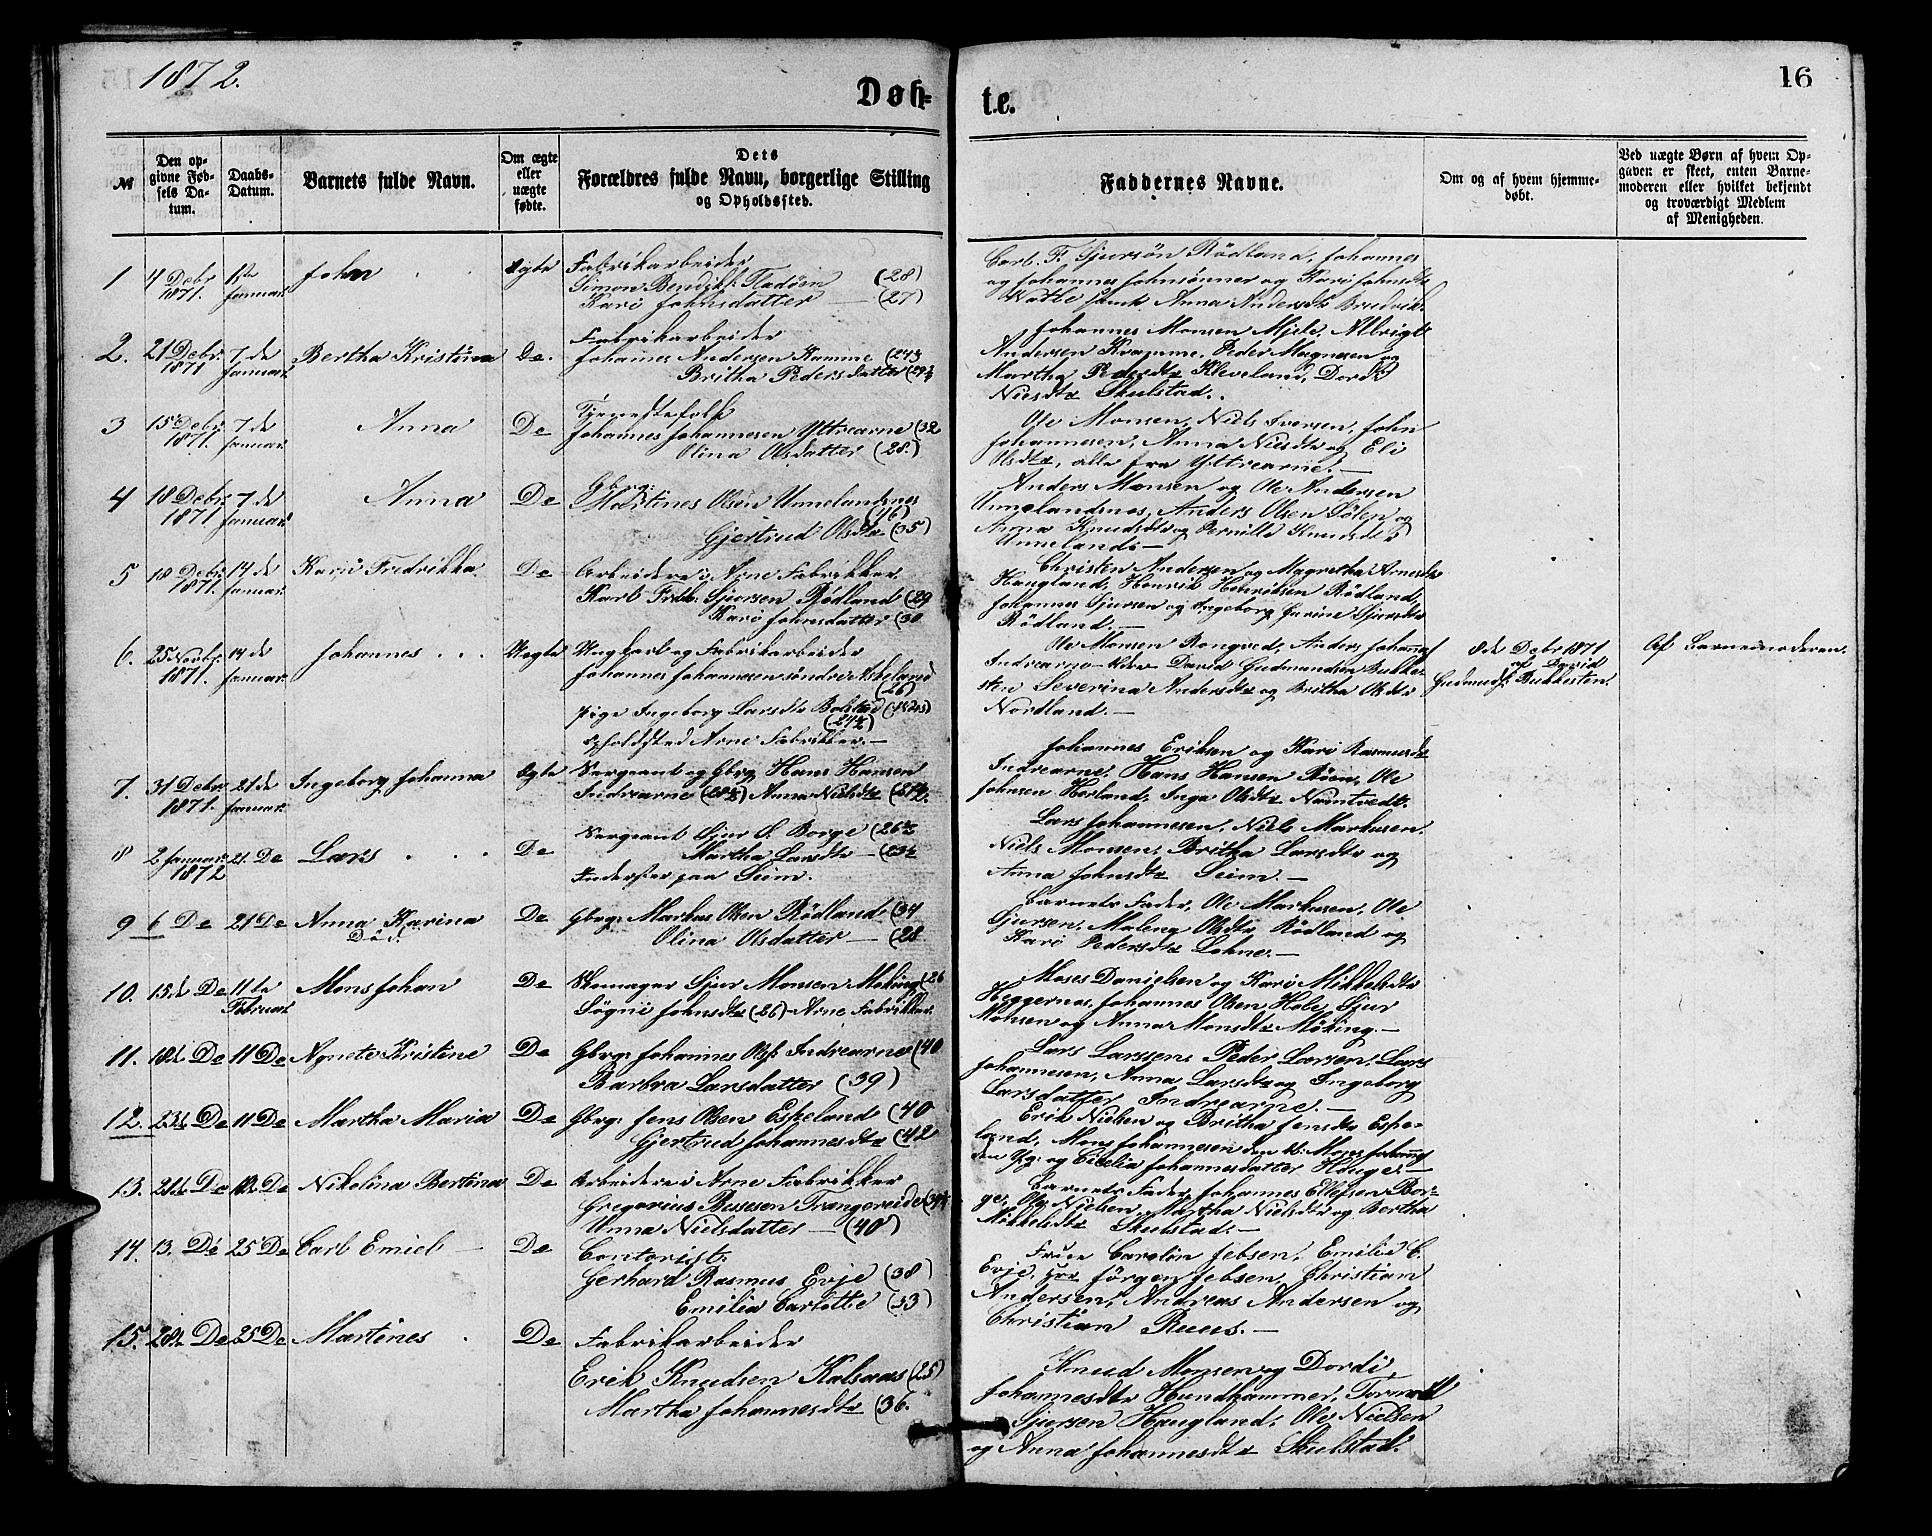 1872.
Døb-
te.
16
№
Den op-
givne Fød-
sels Da-
tum.
Daabs-
Datum.
Barnets fulde Navn.
Om ægte
eller
uægte
fødte.
Dets
Forældres fulde Navn, borgerlige Stilling
og Opholdssted.
Faddernes Navne.
Om og af hvem hjemme-
døbt.
Ved uægte Børn af hvem Op-
gaven er skeet, enten Barne-
moderen eller hvilket bekjendt
og troværdigt Medlem
af Menigheden.
1
4 Debr
1871.
1ste
Januar
John
Ægte
Fabrikarbeider
Simon Bendikts. Fladøen (28)
Kari Johnsdatter (27)
Carl F. Gjersøn Rödland, Johannes
og Johannes Johnsönner og Kari Johnsdtr
Anna Andersdtr Bredvik.
2.
21 Debr.
1871
7. de
Januar.
Bertha Kristina
De.
Fabrikarbeider
Johannes Andersen Kamme (24¾
Britha Pedersdatter
Johannes Monsen Mjele, Albrigt
Andersen Kvamme, Peder Magnesen og
Martha Pedersdtr Kleveland, Dordi
Nielsdtr Skulstad.
3
15 Debr.
1871.
7. de
Januar.
Anna
De
Tjenestefolk
Johannes Johannesen Yttrearne (32
Olina Olsdatter (28.)
Ole Monsen, Niels Iversen, John
Johannesen, Anna Nielsdtr og Eli
Olsdtr, alle fra Yttrearne.
4
18 Debr.
1871
7 de
Januar
Anna
De
Gbrg:
Martines Olsøn Unnelandsnes
Gjertrud Olsdtr (35)
Anders Monsen og Ole Andersen
Unnelandsnes, Anders Olsen Sölen og
Anna Knudsdtr og Pernille Knudsdtr
Unneland.
5
18 Debr.
1871.
14 de
Januar.
Kari Fredrikka.
De
Arbeidere i Arne Fabrikker
Karl Fredr: Gjersen Rödland (29
Kari Johnsdatter (30
Christen Andersen og Magretha Arnesdtr
Haugland, Henrik Henriksen Rödland,
Johannes Gjursen og Ingeborg Gurine Gjursdtr
Rödland.
6.
25 Novbr.
1871.
14 de
Januar.
Johannes
Uægte
Ungkarl og Fabrikarbeider
Johannes Johannesen söndre Askeland
(26)
Pige Ingeborg Larsdtr Bolstad
(24½)
Opholdsted Arne Fabrikker.
Ole Monsen Rongved, Anders Johannes
Indrearne David Gudmundsen Bukke-
sten Severina Andersdtr og Britha Olsdtr
Nordland.
8de Debr 1871
af David
Gudmunds. Bukkesten.
Af Barnemoderen.
7.
31 Debr.
1871.
21 de
Januar.
Ingeborg Johanna
Ægte
Sergeant og Gbrg Hans Hansen
Indrearne Anna Nielsdtr
Johannes Eriksen og Kari Rasmusdtr
Indrearne, Hans Hansen Röen, Ole
Johnsen Horland, Inga Olsdtr Namtvedt.
8
2 Januar
1872
21. De
Lars
De
Sergeant Gjur S. Borge (26½
Martha Larsdtr
Inderster paa Seim.
Lars Johannesen, Niels Markusen,
Niels Monsen, Britha Larsdtr og
Anna Johnsdtr Seim.
9
6 De
21 De
Anna Karina
Död.
De
Gbrg: Markus Olsen Rödland (34
Olina Olsdatter (28
Barnets Fader, Ole Markusen, Ole
Gjursen, Malena Olsdtr Rödland og
Kari Pedersdtr Lohne.
10.
13de De
11te
Februar
Mons Johan
De
Skomager Gjur Monsen Möking (26
Sögni Johnsdtr (26) Arne Fabrikker.
Moses Danielsen og Kari Mikkelsdtr
Heggernes, Johannes Olsen Hole, Gjur
Monsen og Anna Monsdtr Möking.
11.
18de De
11 De
Agnete Kristine
De
Gbrg: Johannes Ols. Indrearne (40
Barbra Larsdatter (39)
Lars Larssen, Peder Larsen, Lars
Johannesen, Anna Larsdtr og Ingeborg
Larsdatter Indrearne.
12.
23de De
11 De
Martha Maria
De
Gbrg: Jens Olsen Espeland (40
Gjertrud Johannesdtr (42
Erik Nielsen og Britha Jensdtr Espe-
land, Mons Johannesen den æ. Mons Johannes
den Yg: og Cicelia Johannesdatter Hauge.
13.
21de De
18de De
Nikolina Bertina
De
Arbeider i Arne Fabrikker
Gregorius Bessesen Trengereide
Unna Nielsdatter (40)
Barnets Fader, Johannes Ellefsen Bor-
ge, Ole Nielsen, Martha Nielsdtr og Bertha
Mikkelsdtr Skulstad.
14.
13. De
25 De
Carl Emiel
De
Contorist
Gerhard Rasmus Evje (38)
Emilia Carlotte (33)
Fruer Carolin Jebsen, Emilie C.
Evje, Jörgen Jebsen, Christian
Andersen, Andreas Andersen og
Christian Ruus.
15.
28de De
25 De
Martines
De
Fabrikarbeider
Erik Knudsen Kalsaas (25)
Martha Johannesdtr (36.
Knud Monsen og Dordi
Johannesdtr Hundhammer, Tormod
Gjersen Haugland, Ole Nielsen
og Anna Johannesdtr Skulstad.